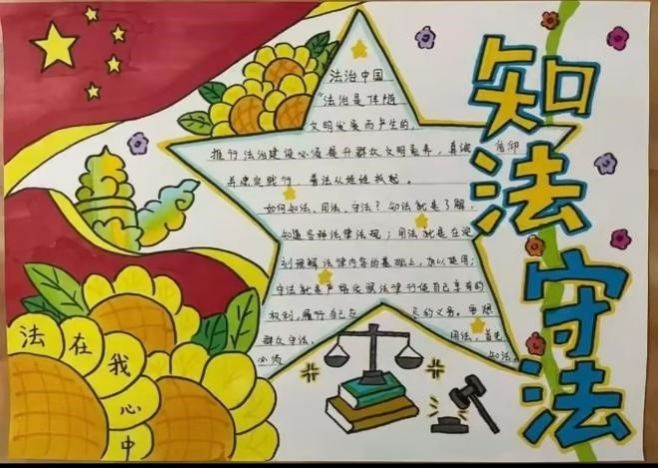 知法
守法
法治中国
"法治是伴随
文明发展而产生的,
推行法治建设必须提升群众文明素养,真诚信仰
并坚定践行,普法从娃娃抓起。
如何知法、用法、守法?知法就是了解,
知道各种法律法规;用法就是在深
刻理解法律内容的基础上,加以运用;
守法就是严格依照法律行使自己享有的
权利,履行自己应 尽的义务。要想
群众守法, 用法,首先
必须 知法。
法在我心中